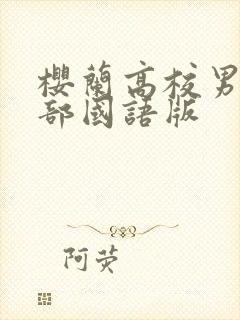 櫻蘭高校男
部國語版
阿荧